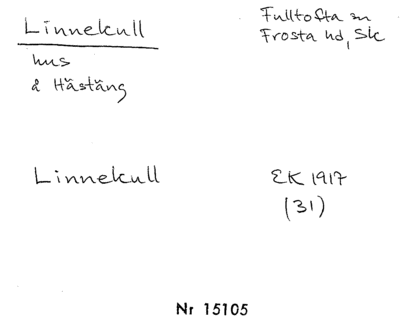 Linnekull
Fulltofta sn
Frosta hd, Sk
hus
å Hästäng
Linnekull
EK 1917
(31)
Nr 15105